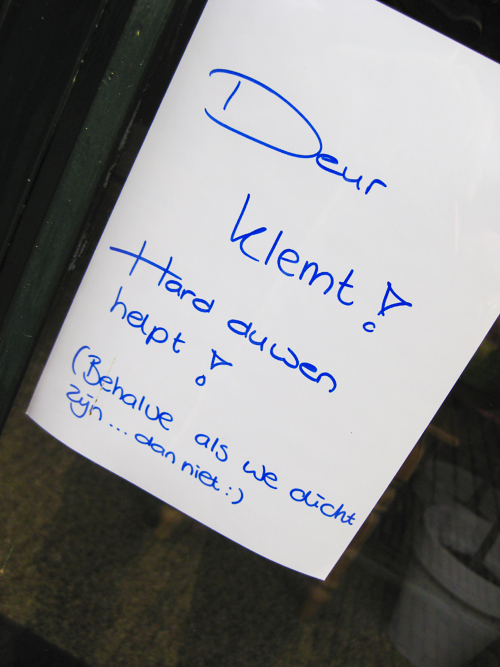 Deur
klemt!
Hard duwen
helpt!
(Behalve als we dicht
zijn... dan niet:)